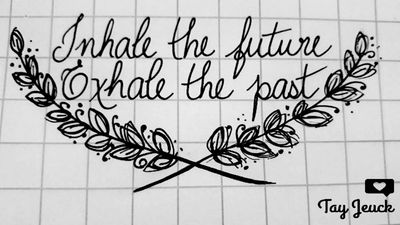 Inhale the future
Exhale the past
Tay Jeuck